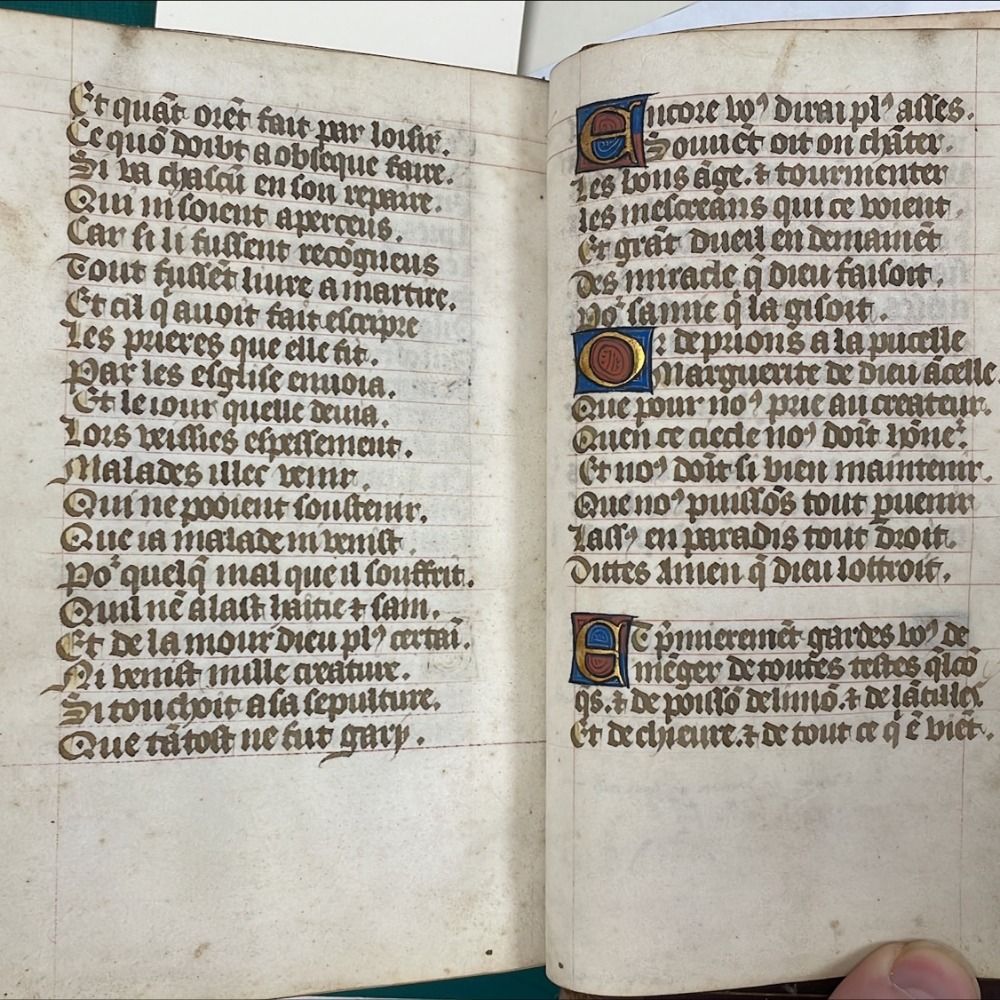 Et quāt orēt fait par loisir.
Ce quō doibt a obseque faire.
Si va chascū en son repaire.
Qui ni soient aperceus.
Car si li fussent recōgneus
Tout fussēt liure a martire.
Et cil q̄ auoit fait escripre
Les prieres que elle fit.
Par les esglise enuoia.
Et le iour quelle deuia.
Lors veissies espessement.
Malades illec venir.
Qui ne pooient soustenir.
Que ia malade ni venist.
Po᷒ quelq̄ mal que il souffrit.
Quil nē alast haitie ⁊ sain.
Et de la mour dieu plꝰ certaī.
Ni venist mille creature.
Si touchoit a sa sepulture.
Que tātost ne fut gary.
Encore voꝰ dirai plꝰ asses.
Souuēt oit on chāter.
Les bons āge. ⁊ tourmenter
les mescreans qui ce voient.
Et grāt dueil en demainēt
Des miracle q̄ dieu faisoit.
Po᷒ sainte q̄ la gisoit.
Or deprions a la pucelle
Marguerite de dieu ācelle.
Que pour noꝰ prie au createur.
Quen ce ciecle noꝰ doīt hōne᷒.
Et noꝰ doīt si bien maintenir.
Que noꝰ puissōs tout ꝑuenir
Lassꝰ en paradis tout droit.
Dittes Amen q̄ dieu lottroit.
Et p̄mieremēt gardes voꝰ de
mēger de toutes testes q̄lcō
q̄s. ⁊ de poissō de limō. ⁊ de
Et de chieure. ⁊ de tout ce q̄ ē viēt.